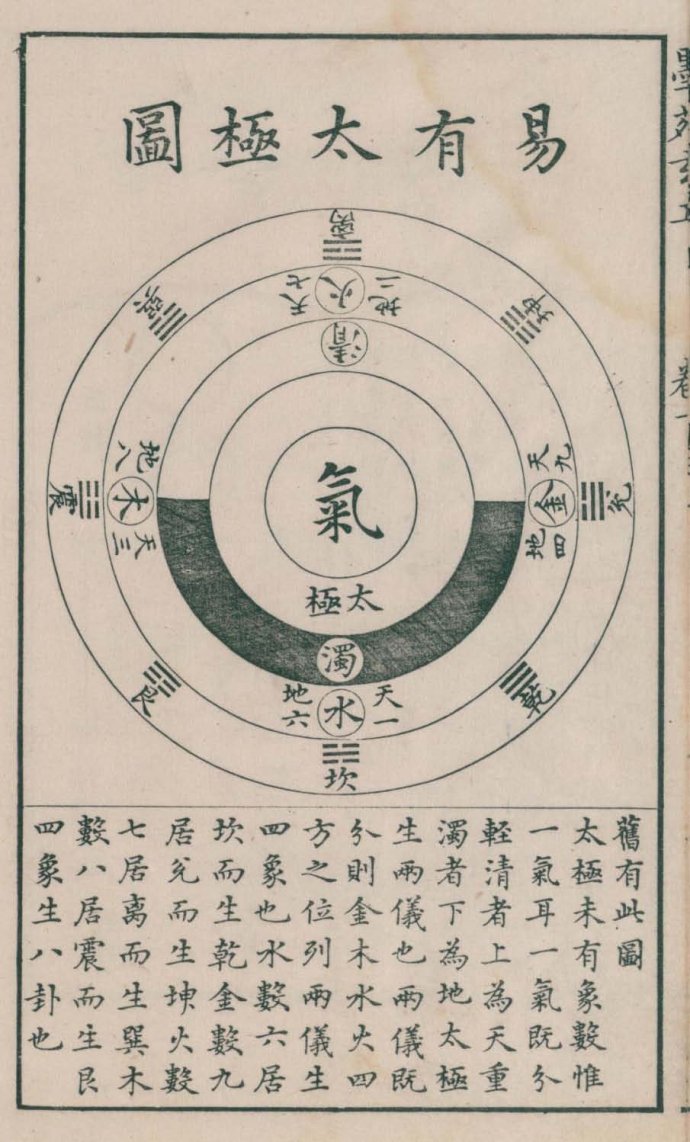 易有太極圖
離
天七
火
地二
巽
坤
清
地八
木
天三
震
氣
天九
金
地四
兌
太極
濁
艮
乾
地六
水
天一
坎
舊有此圖
太極未有象數惟
一氣耳一氣既分
輕清者上為天重
濁者下為地太極
生兩儀也兩儀既
分則金木水火四
方之位列兩儀生
四象也水數六居
坎而生乾金數九
居兌而生坤火數
七居离而生巽木
數八居震而生艮
四象生八卦也